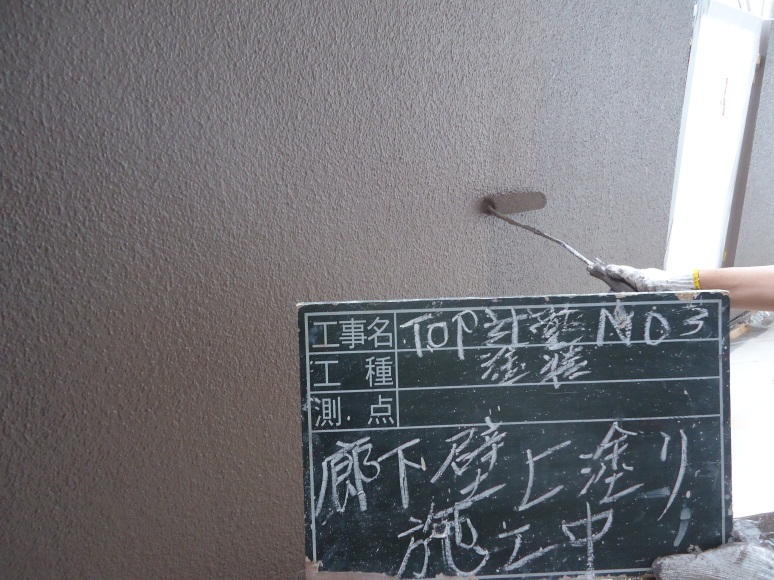 工事名 TOP社慧 NO3
工種 塗装
測点
廊下壁上塗り
施工中